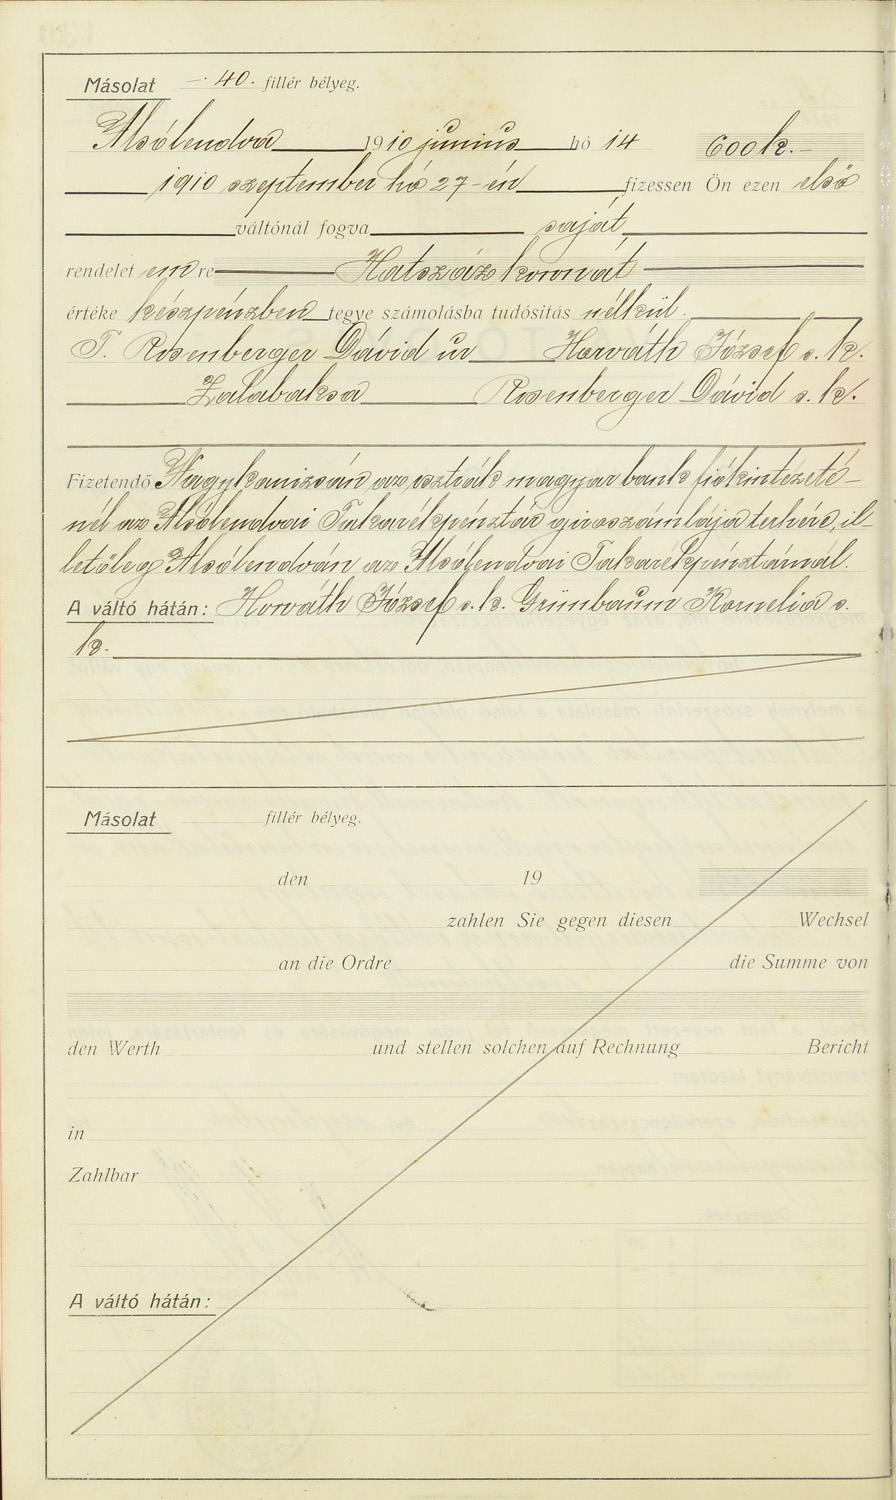 Másolat —·40· fillér bélyeg.
Alsólendva 1910 június hó 14 600 k.—
1910 szeptember hó 27-én fizessen Ön ezen első
váltónál fogva saját
rendelet emre Hatszáz koronát
értéke készpénzben tegye számolásba tudósitás nélkül.
T. Rosenberger Dávid úr Horváth József s. k.
Zalabaksa Rosenberger Dávid s. k.
Fizetendő Nagykanizsán az osztrák magyar bank fiókintézeté-
nél az Alsólendvai Takarékpénztár giroszámlája terhére, il-
letőleg Alsólendván az Alsólendvai Takarékpénztárnál.
A váltó hátán: Horváth József s. k. Grünbaum Kornelia s.
k.
Másolat fillér bélyeg.
den 19
zahlen Sie gegen diesen Wechsel
an die Ordre die Summe von
den Werth und stellen solchen auf Rechnung Bericht
in
Zahlbar
A váltó hátán: